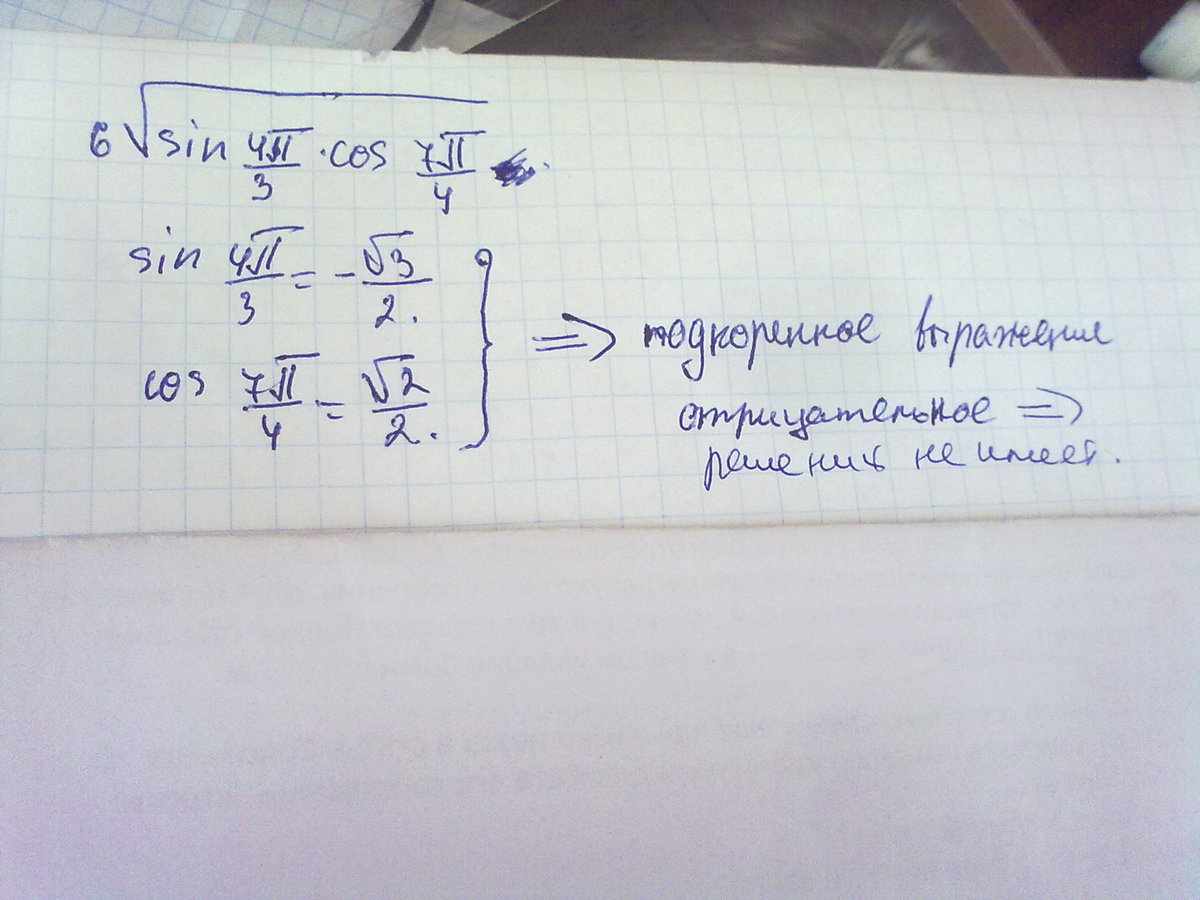 6√sin 4π/3 · cos 7π/4
sin 4π/3 = -√3/2.
cos 7π/4 = √2/2.
} => подкоренное выражение
отрицательное =>
решения не имеет.